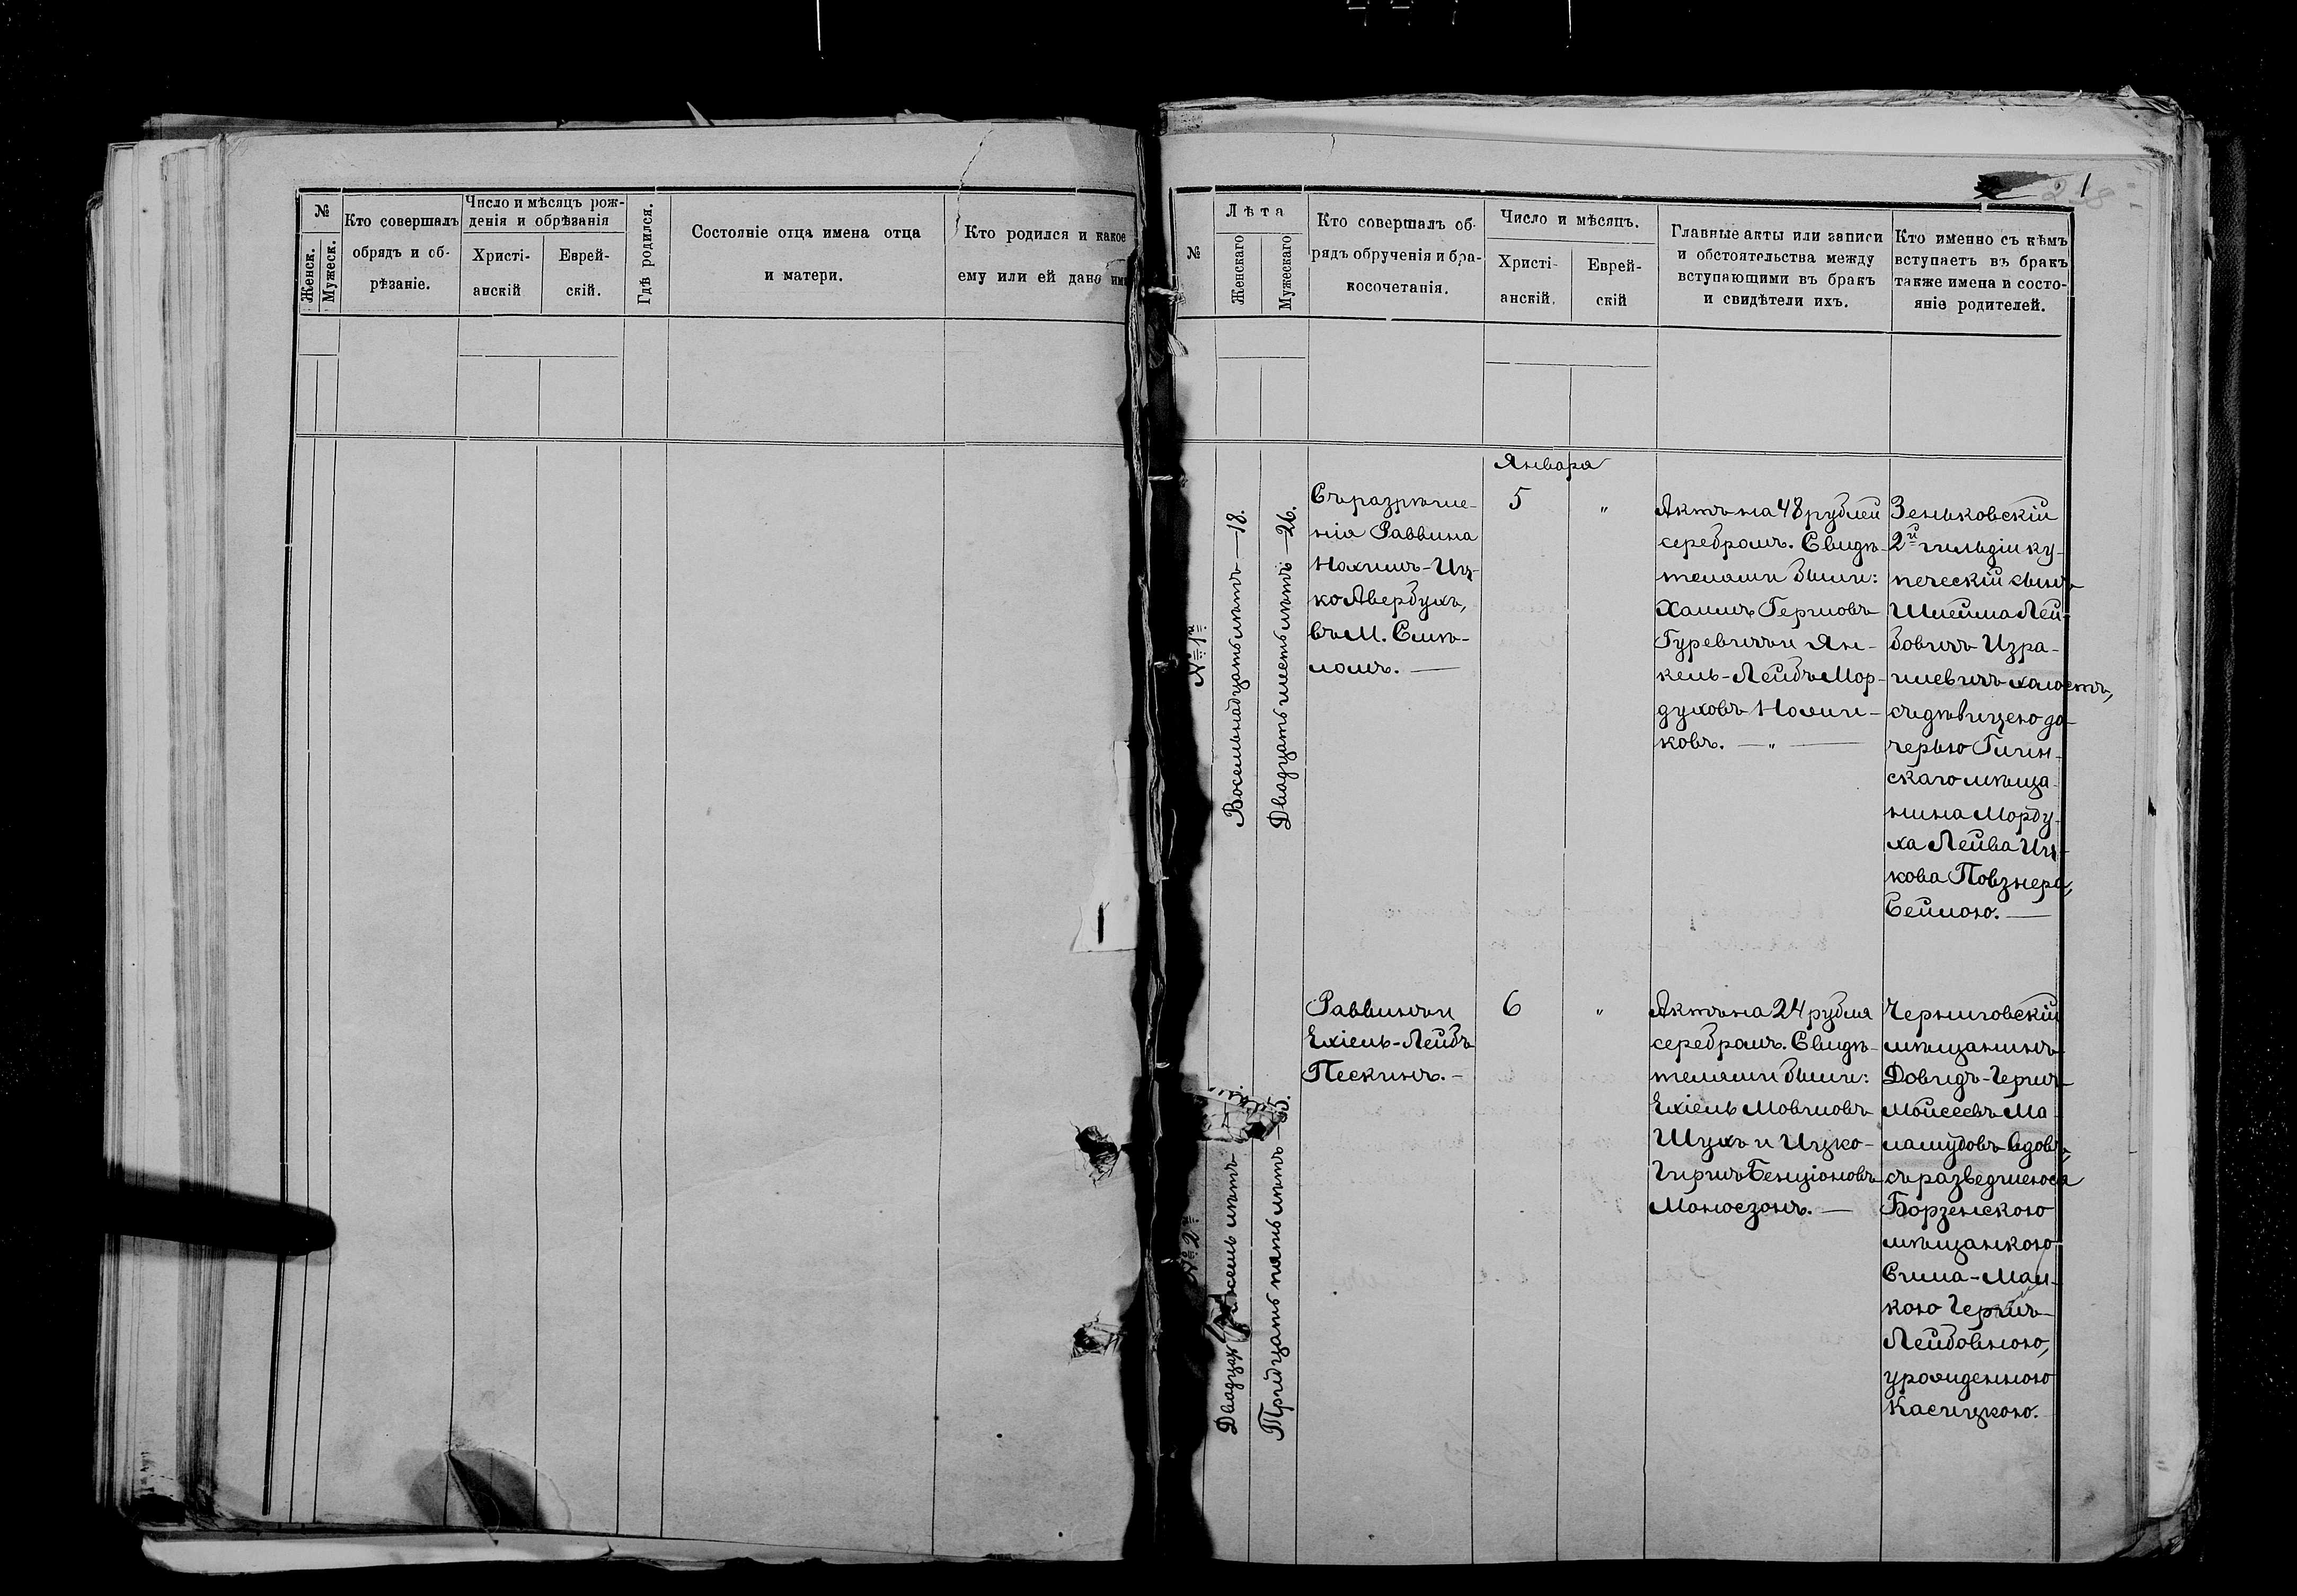 №
Женск.
Мужеск.
Кто совершалъ
обрядъ и об-
рѣзаніе.
Число и мѣсяцъ рож-
денія и обрѣзанія
Христі-
анскій
Еврей-
скій.
Гдѣ родился.
Состояніе отца имена отца
и матери.
Кто родился и какое
ему или ей дано имя
1
1
№
Лѣта
Женскаго
Мужескаго
Кто совершалъ об-
рядъ обрученія и бра-
косочетанія.
Число и мѣсяцъ.
Христі-
анскій.
Еврей-
скій
Главные акты или записи
и обстоятельства между
вступающими въ бракъ
и свидѣтели ихъ.
Кто именно съ кѣмъ
вступаетъ въ бракъ
также имена и состо-
яніе родителей.
Января
№ 1й
Восемьнадцать лѣтъ — 18.
Двадцать шесть лѣтъ — 26.
Съ разрѣше-
нія Раввина
Нахимъ-Иц-
ко Авербухъ,
въ М.
5
"
Актъ на 48 рублей
серебромъ. Свидѣ-
телями были:
Хаимъ Гершовъ
Гуревичъ и Ян-
кель-Лейбъ Мор-
духовъ
ковъ. — " —
Зеньковскій
2й гильдіи ку-
печескій сынъ
Шлейма Лей-
бовичъ Изра-
илевичъ холостъ,
съ дѣвицею до-
черью
скаго мѣща-
нина Морду-
ха Лейва Иц-
кова Повзнера,
Сеймою. —
№ 2й
Двадцать лѣтъ
Тридцать пять лѣтъ — 35.
Раввинъ и
Ехіель-Лейбъ
Пескинъ. —
6
"
Актъ на 24 рубля
серебромъ. Свидѣ-
телями были:
Ехіель Мовшовъ
Шухъ и Ицко-
Гиршъ Бенціоновъ
Моносзонъ. —
Черниговскій
мѣщанинъ
Довидъ-Гершъ
Мойсеевъ Ма-
ламудовъ вдовъ,
съ разведшеюся
Борзенскою
мѣщанкою
Сима-Мал-
кою Гершъ-
Лейбовною,
урожденною
Касицкою.